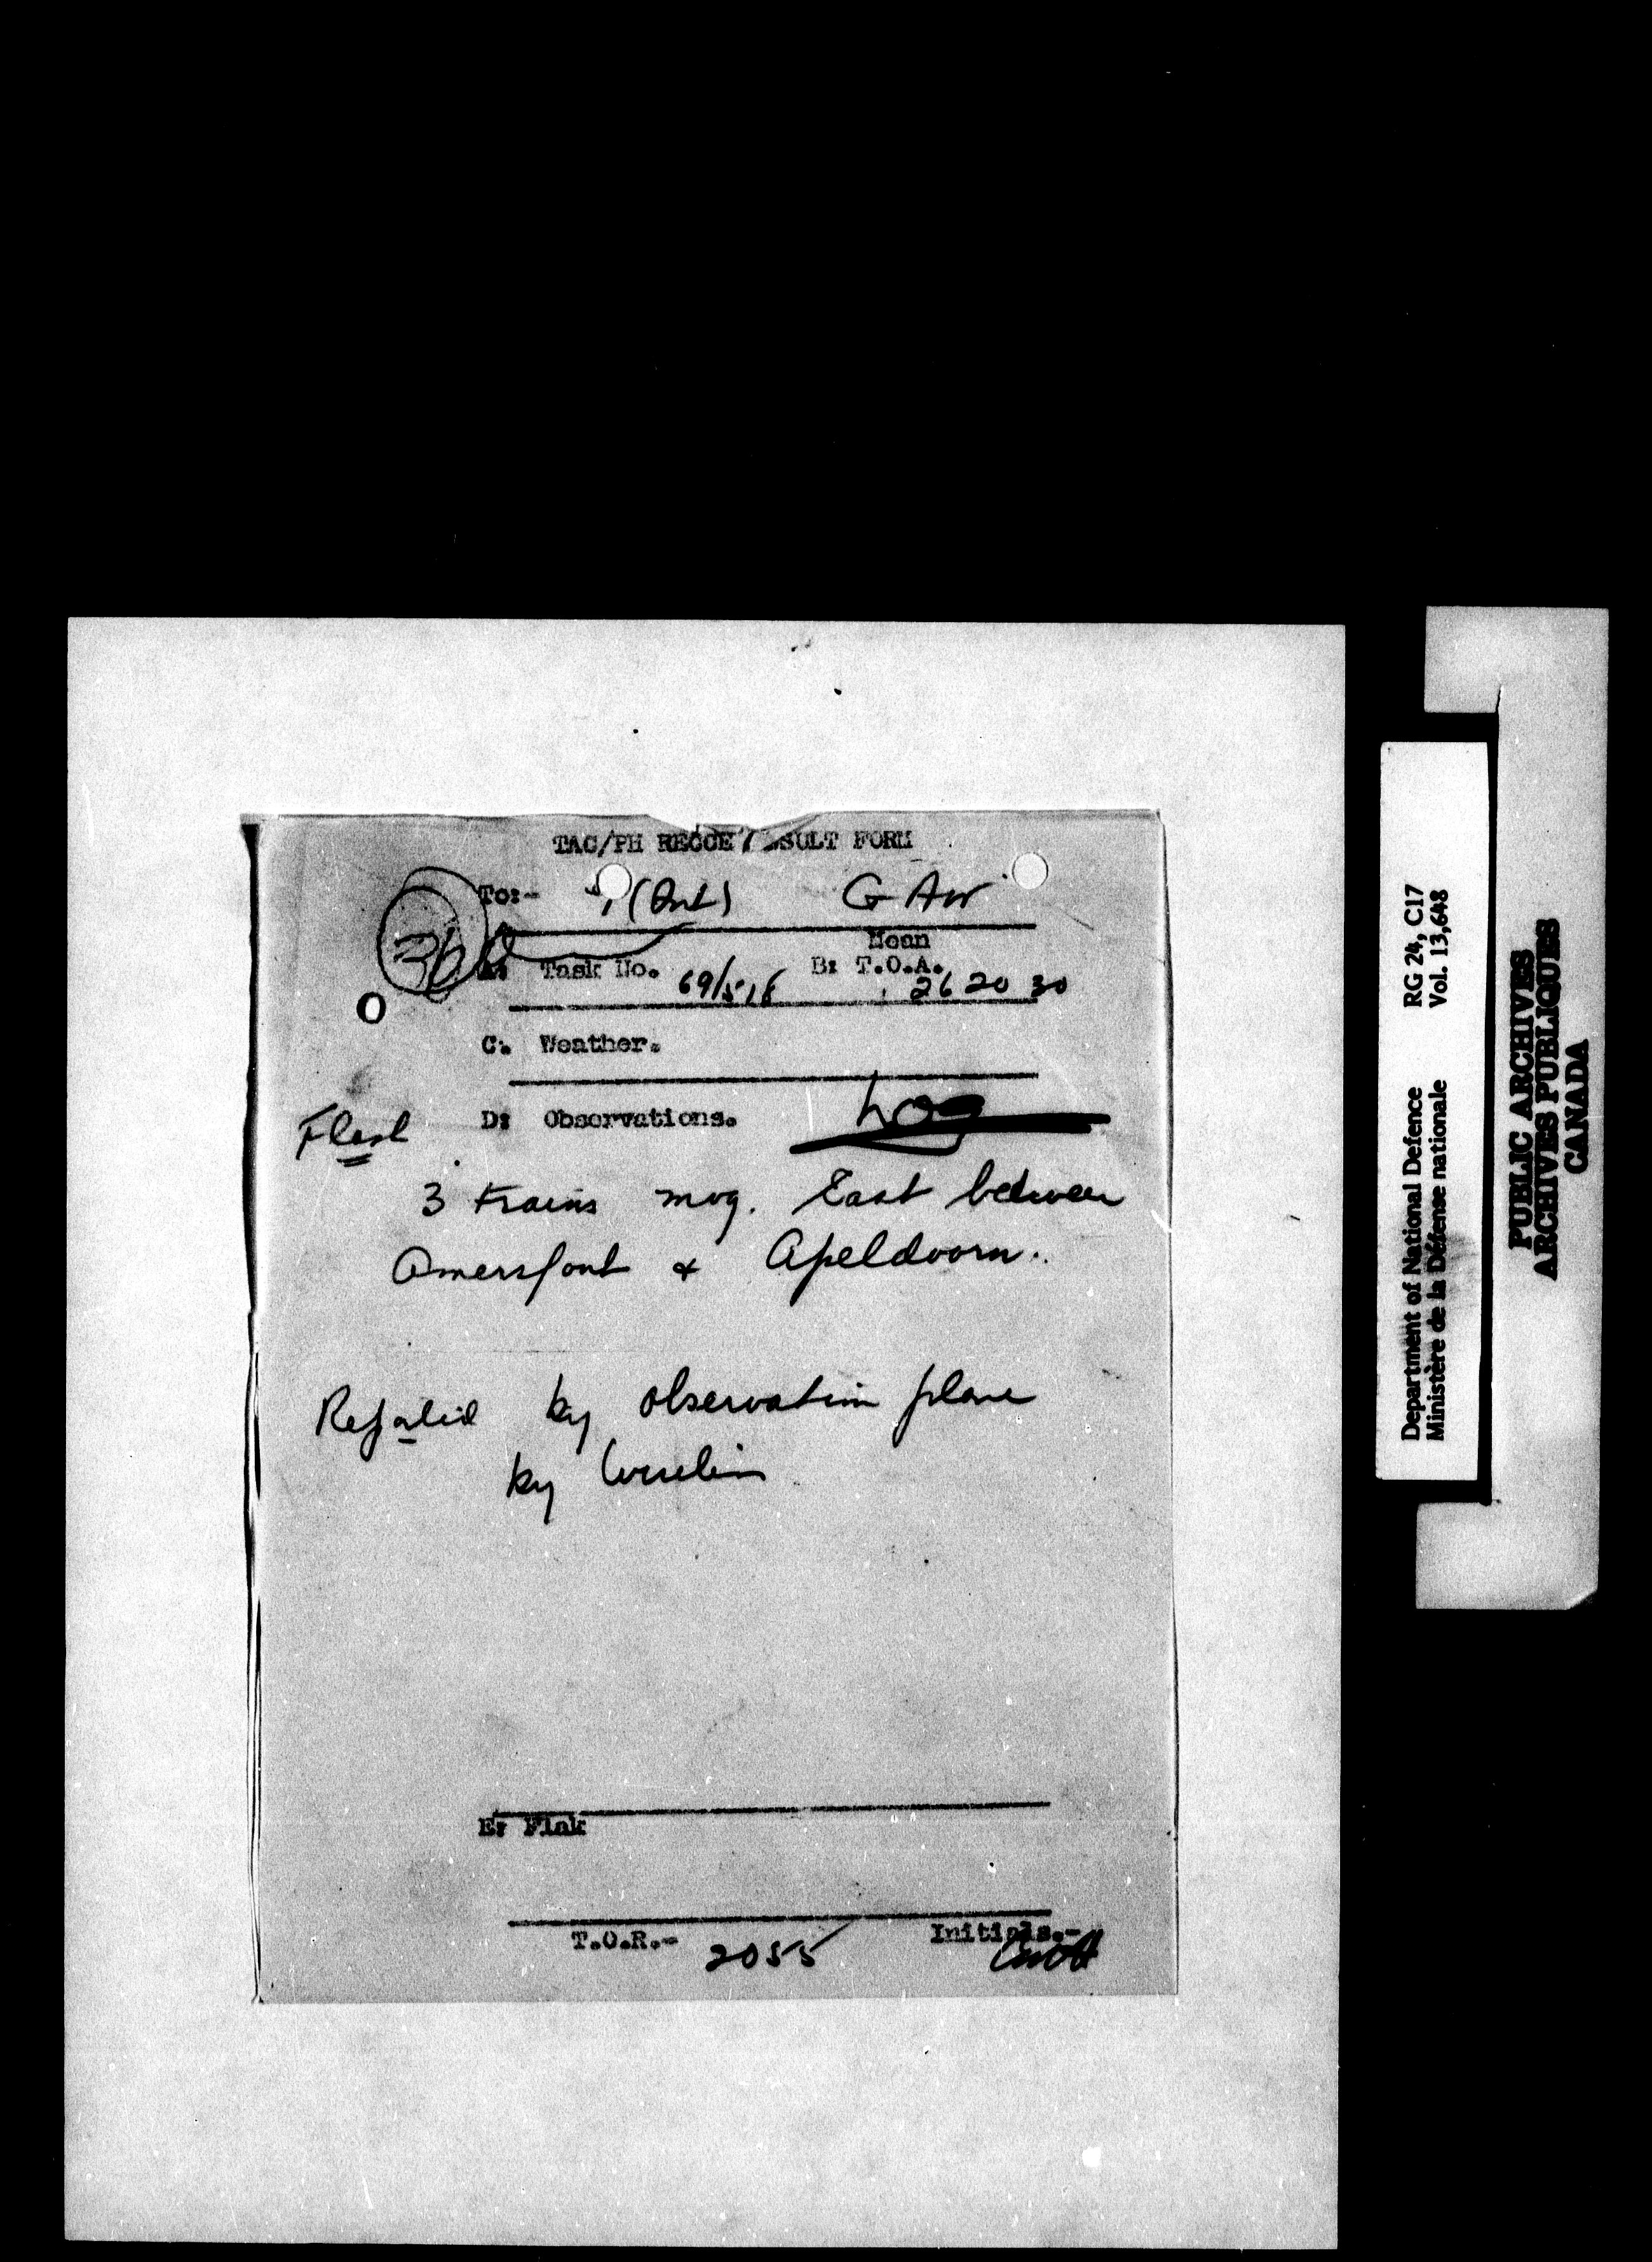 TAC/PH RECCE RESULT FORM
To:- (Int) G Air
360
A: Task No. 69/518 B: Mean T.O.A. 26 20 30
O
C. Weather.
D: Observations. Log
Flash
3 trains mvg. East between
Amersfoort & Apeldoorn.
Reported by observation plane
by
E: Flak
T.O.R.- 2055 Initials.-
Department of National Defence RG 24, C17
Ministère de la Défense nationale Vol. 13,648
PUBLIC ARCHIVES
ARCHIVES PUBLIQUES
CANADA